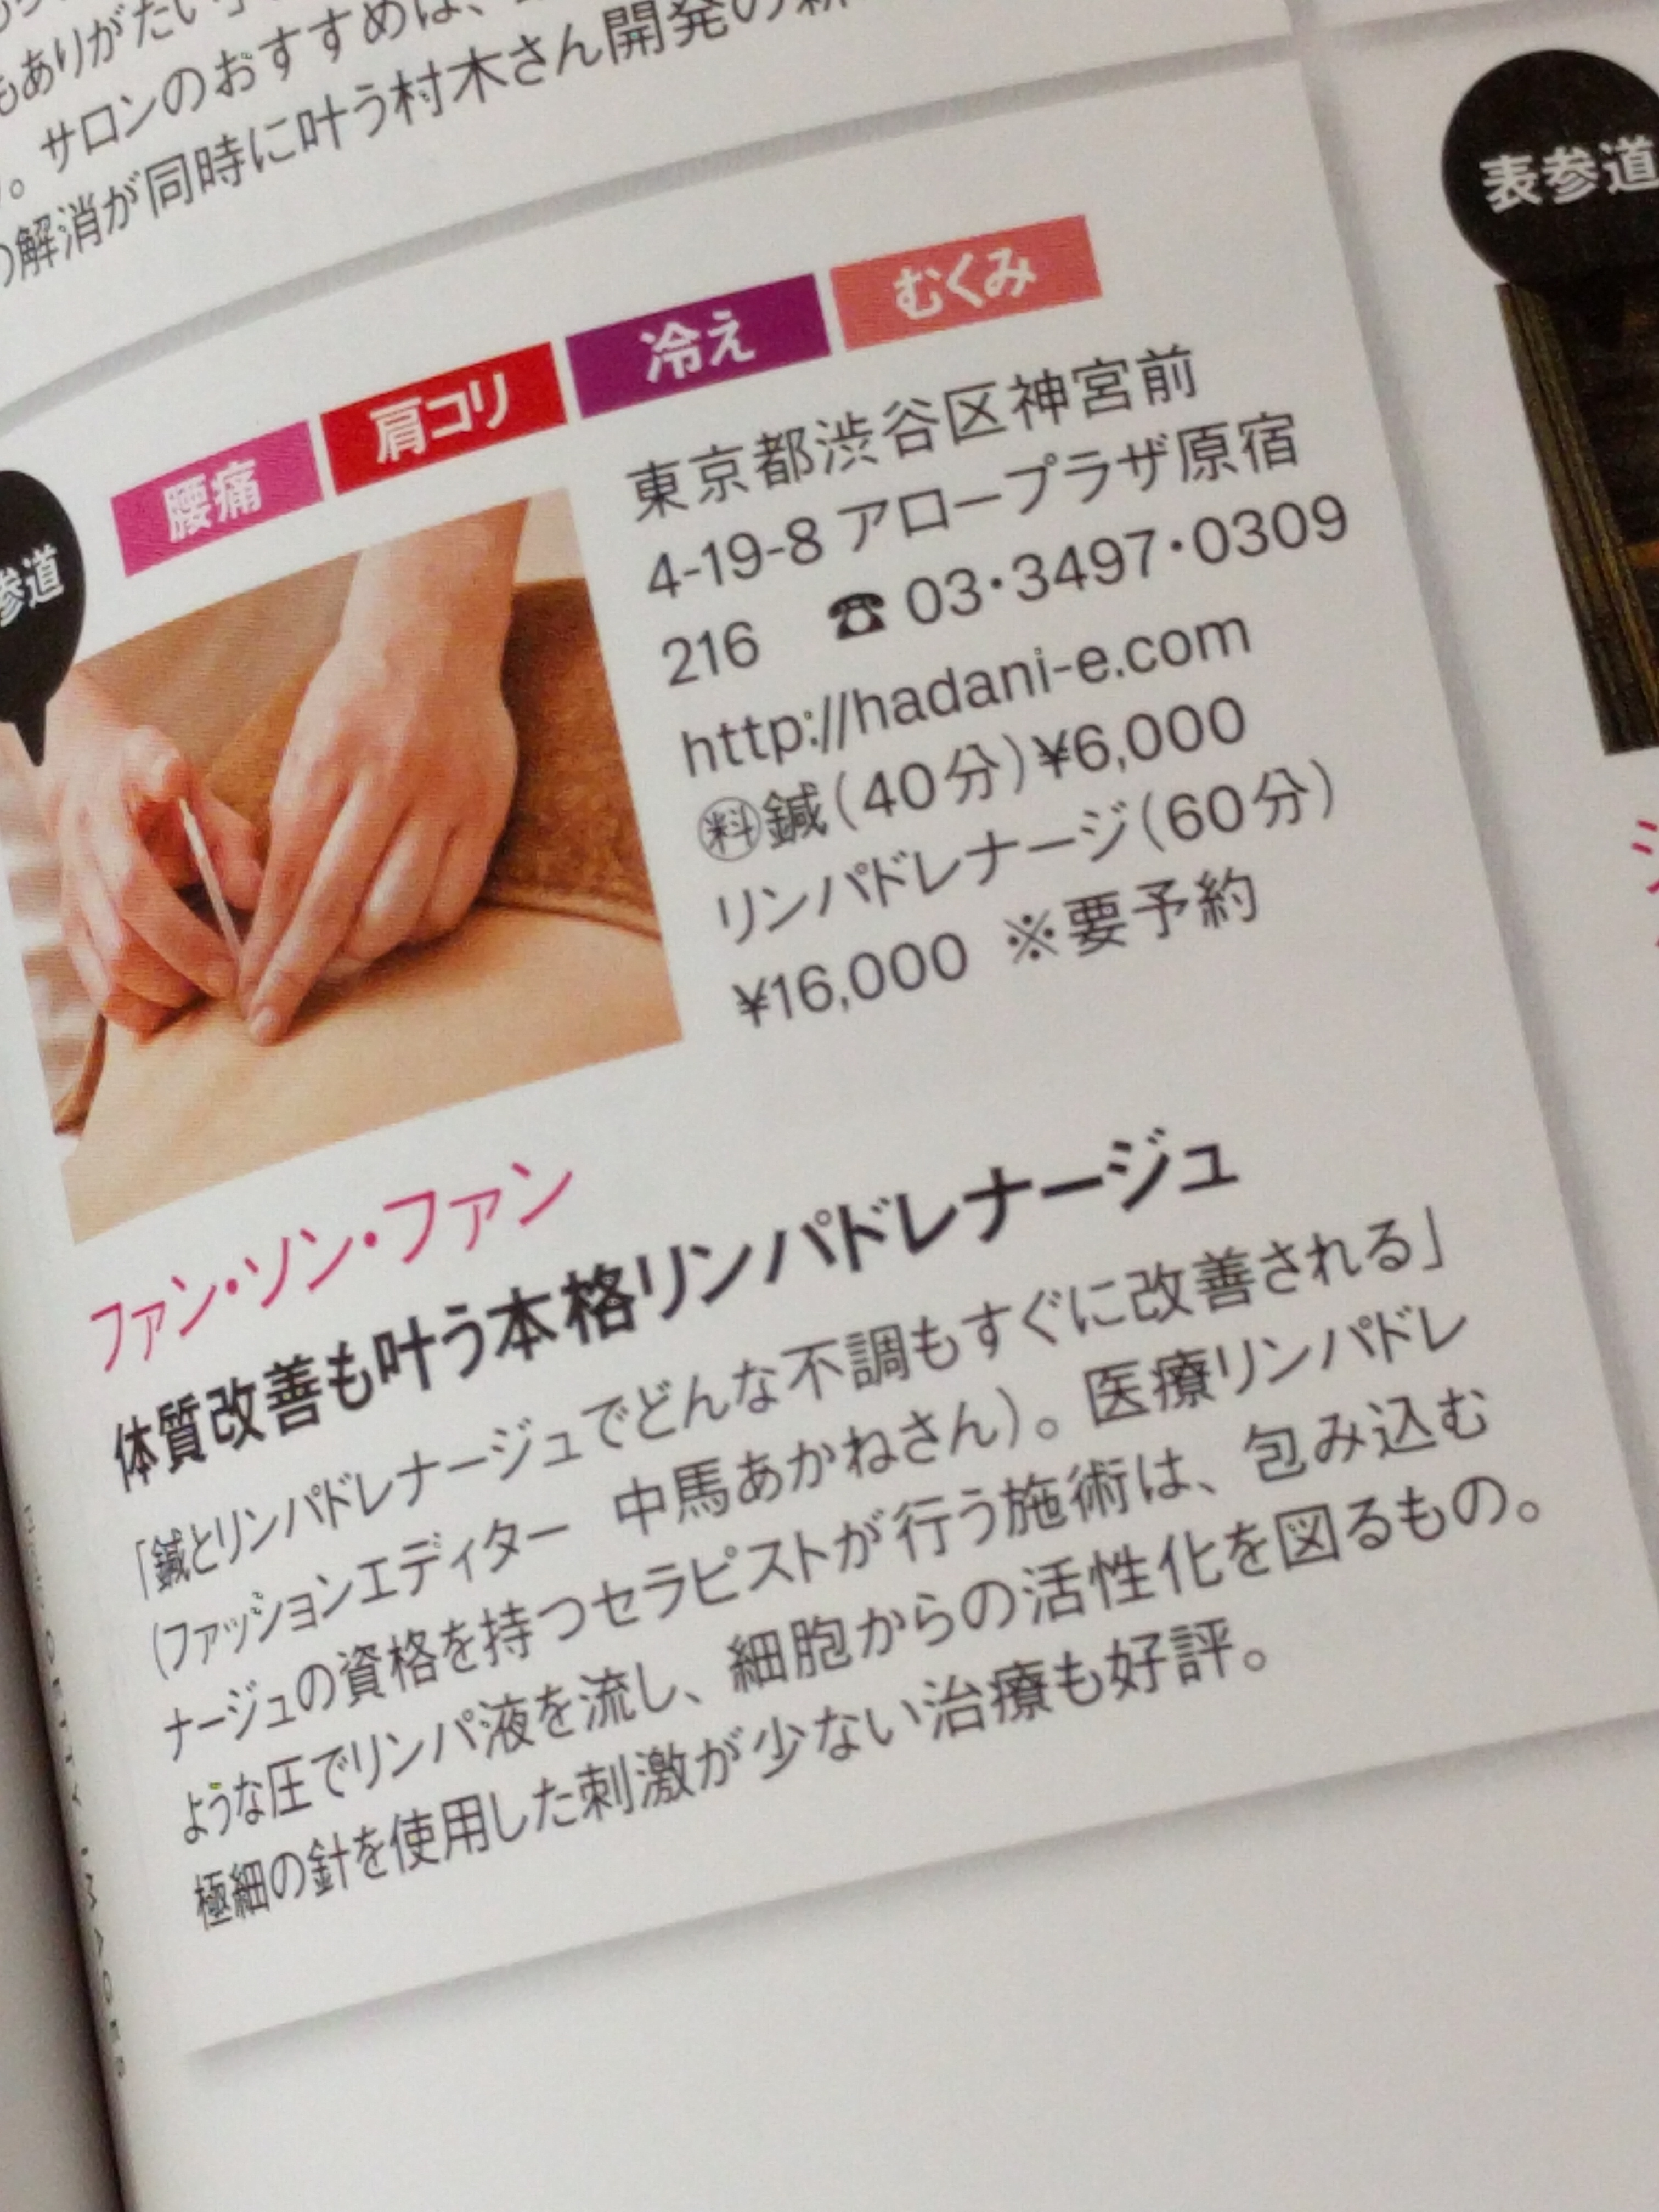 もありがたい
サロンのおすすめは、
解消が同時に叶う村木さん開発の
表参道
参道
腰痛
肩コリ
冷え
むくみ
東京都渋谷区神宮前
4-19-8 アロープラザ原宿
216 ☎03・3497・0309
http://hadani-e.com
㊮鍼(40分)¥6,000
リンパドレナージ(60分)
¥16,000 ※要予約
ファン・ソン・ファン
体質改善も叶う本格リンパドレナージュ
「鍼とリンパドレナージュでどんな不調もすぐに改善される」
(ファッションエディター 中馬あかねさん)。医療リンパドレ
ナージュの資格を持つセラピストが行う施術は、包み込む
ような圧でリンパ液を流し、細胞からの活性化を図るもの。
極細の針を使用した刺激が少ない治療も好評。
GETTY IMAGES